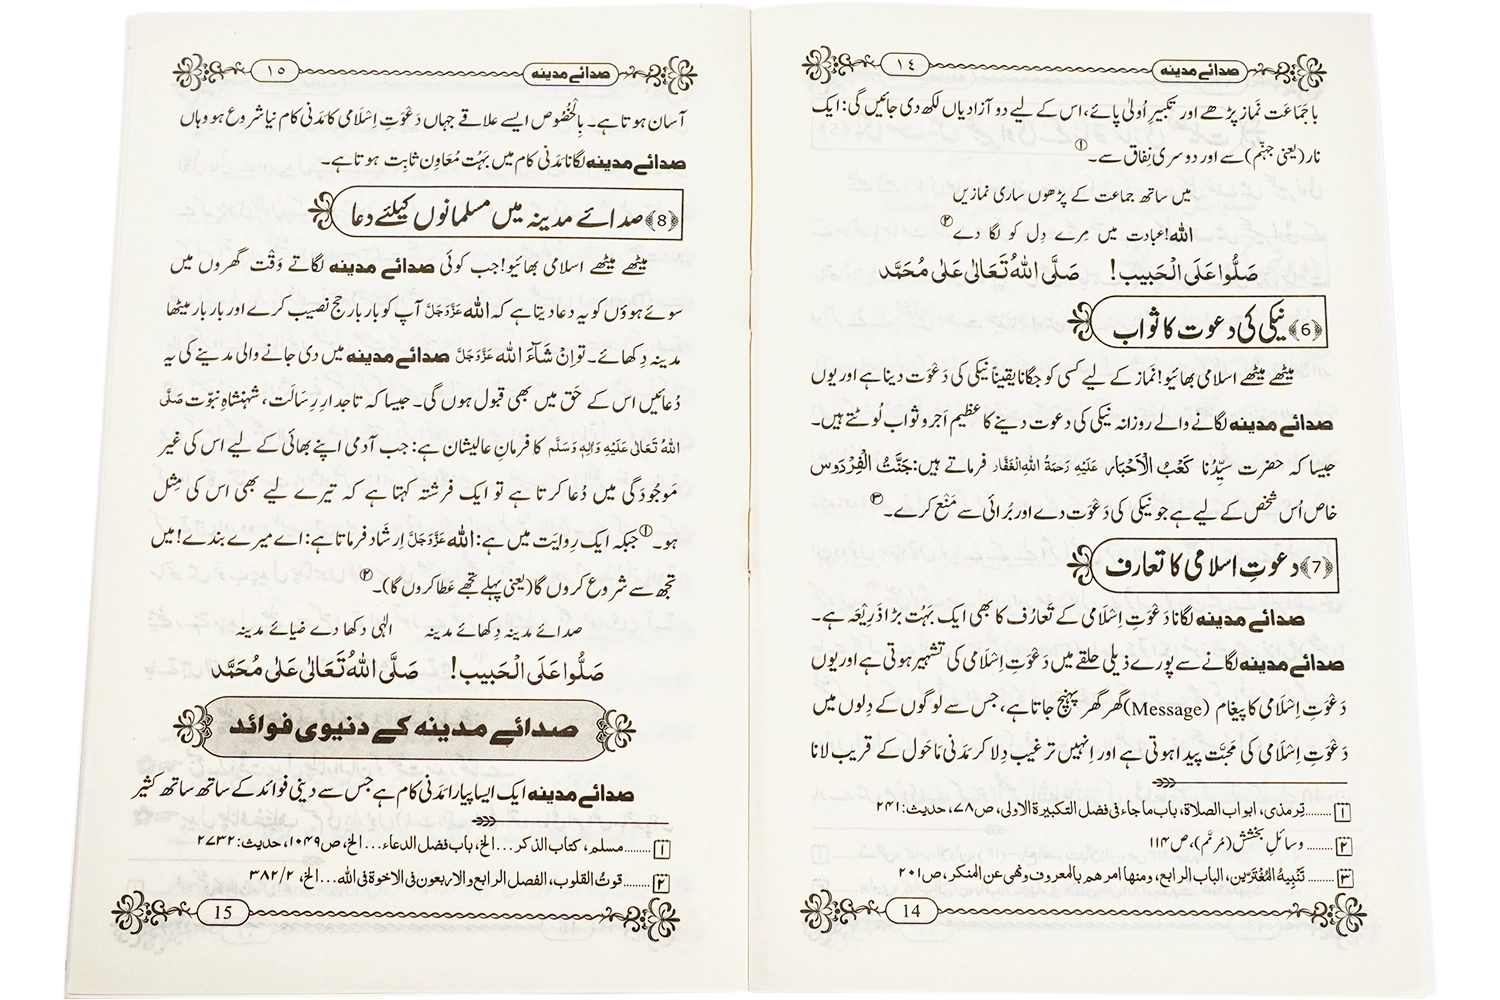 صدائے مدینہ
١٤
با جَمَاعَت نَماز پڑھے اور تکبیرِ اُولیٰ پائے، اس کے لیے دو آزادیاں لکھ دی جائیں گی: ایک
نار (یعنی جہنّم) سے اور دوسری نِفاق سے۔ ①
میں ساتھ جماعت کے پڑھوں ساری نمازیں
اللہ! عبادت میں مِرے دِل کو لگا دے ②
صَلُّوْا عَلَی الْحَبِیب! صَلَّی اللهُ تَعَالٰی عَلٰی مُحَمَّد
﴿6﴾ نیکی کی دعوت کا ثواب
میٹھے میٹھے اسلامی بھائیو! نَماز کے لیے کسی کو جگانا یقیناً نیکی کی دَعْوَت دینا ہے اور یوں
صدائے مدینہ لگانے والے روزانہ نیکی کی دعوت دینے کا عظیم اَجر و ثواب لُوٹتے ہیں۔
جیسا کہ حضرت سیِّدُنا کَعْبُ الْاَحْبَار عَلَیْہِ رَحمَۃُ اللهِ الْغَفَّار فرماتے ہیں: جَنَّتُ الْفِرْدَوس
خاص اُس شخص کے لیے ہے جو نیکی کی دَعْوَت دے اور بُرائی سے مَنْع کرے۔ ③
﴿7﴾ دعوتِ اسلامی کا تعارف
صدائے مدینہ لگانا دَعْوَتِ اِسْلَامی کے تَعارُف کا بھی ایک بَہُت بڑا ذَرِیْعَہ ہے۔
صدائے مدینہ لگانے سے پورے ذیلی حلقے میں دَعْوَتِ اِسْلَامی کی تشہیر ہوتی ہے اور یوں
دَعْوَتِ اِسْلَامی کا پیغام (Message) گھر گھر پہنچ جاتا ہے، جس سے لوگوں کے دِلوں میں
دَعْوَتِ اِسْلَامی کی مَحبَّت پیدا ہوتی ہے اور اِنہیں ترغیب دِلا کر مَدَنی مَاحَول کے قریب لانا
۱ ........ تِرمذی، ابواب الصلاة، باب ما جاء فی فضل التکبیرة الاولی، ص ۷۸، حدیث: ۲۴۱
۲ ........ وسائلِ بخشش (مُرمَّم)، ص ۱۱۴
۳ ........ تَنْبِیہُ المُغْتَرِّین، الباب الرابع، ومنها امرهم بالمعروف ونهی عن المنکر، ص ۲۰۱
14
صدائے مدینہ
١٥
آسان ہوتا ہے۔ بِالْخُصُوص ایسے علاقے جہاں دَعْوَتِ اِسْلَامی کا مَدَنی کام نیا شروع ہو وہاں
صدائے مدینہ لگانا مَدَنی کام میں بَہُت مُعَاوِن ثابِت ہوتا ہے۔
﴿8﴾ صدائے مدینہ میں مسلمانوں کیلئے دعا
میٹھے میٹھے اسلامی بھائیو! جب کوئی صدائے مدینہ لگاتے وَقْت گھروں میں
سوئے ہوؤں کو یہ دعا دیتا ہے کہ اللہ عَزَّوَجَلَّ آپ کو بار بار حج نصیب کرے اور بار بار میٹھا
مدینہ دِکھائے۔ تو اِنْ شَآءَ اللہ عَزَّوَجَلَّ صدائے مدینہ میں دی جانے والی مدینے کی یہ
دُعائیں اس کے حَق میں بھی قبول ہوں گی۔ جیسا کہ تاجدارِ رِسَالَت، شَہنشاہِ نَبوّت صَلَّی
اللهُ تَعَالٰی عَلَیْہِ وَاٰلِہٖ وَسَلَّم کا فرمانِ عالیشان ہے: جب آدمی اپنے بھائی کے لیے اس کی غیر
مَوجُودَگی میں دُعا کرتا ہے تو ایک فرشتہ کہتا ہے کہ تیرے لیے بھی اس کی مِثل
ہو۔ ① جبکہ ایک رِوایَت میں ہے: اللہ عَزَّوَجَلَّ اِرشَاد فرماتا ہے: اے میرے بندے! میں
تجھ سے شروع کروں گا (یعنی پہلے تجھے عَطا کروں گا)۔ ②
صدائے مدینہ دِکھائے مدینہ الٰہی دکھا دے ضیائے مدینہ
صَلُّوْا عَلَی الْحَبِیب! صَلَّی اللهُ تَعَالٰی عَلٰی مُحَمَّد
صدائے مدینہ کے دنیوی فوائد
صدائے مدینہ ایک ایسا پیارا مَدَنی کام ہے جس سے دینی فوائد کے ساتھ ساتھ کثیر
۱ ........ مسلم، کتاب الذکر ... الخ، باب فضل الدعاء ... الخ، ص ۱۰۴۹، حدیث: ۲۷۳۲
۲ ........ قوتُ القلوب، الفصل الرابع والاربعون فی الاخوة فی اللہ ... الخ، ۲/ ۳۸۲
15